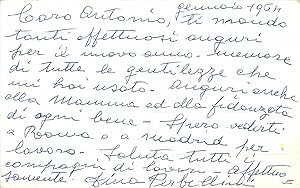 gennaio 1964
Caro Antonio, ti mando
tanti affettuosi auguri
per il nuovo anno - memore
di tutte le gentilezze che
mi hai usato. Auguri anche
alla Mamma ed alla fidanzata
di ogni bene - Spero vederti
a Roma o a Madrid per
lavoro. Saluta tutti i
compagni di lavoro. Affettuo-
samente! Lina